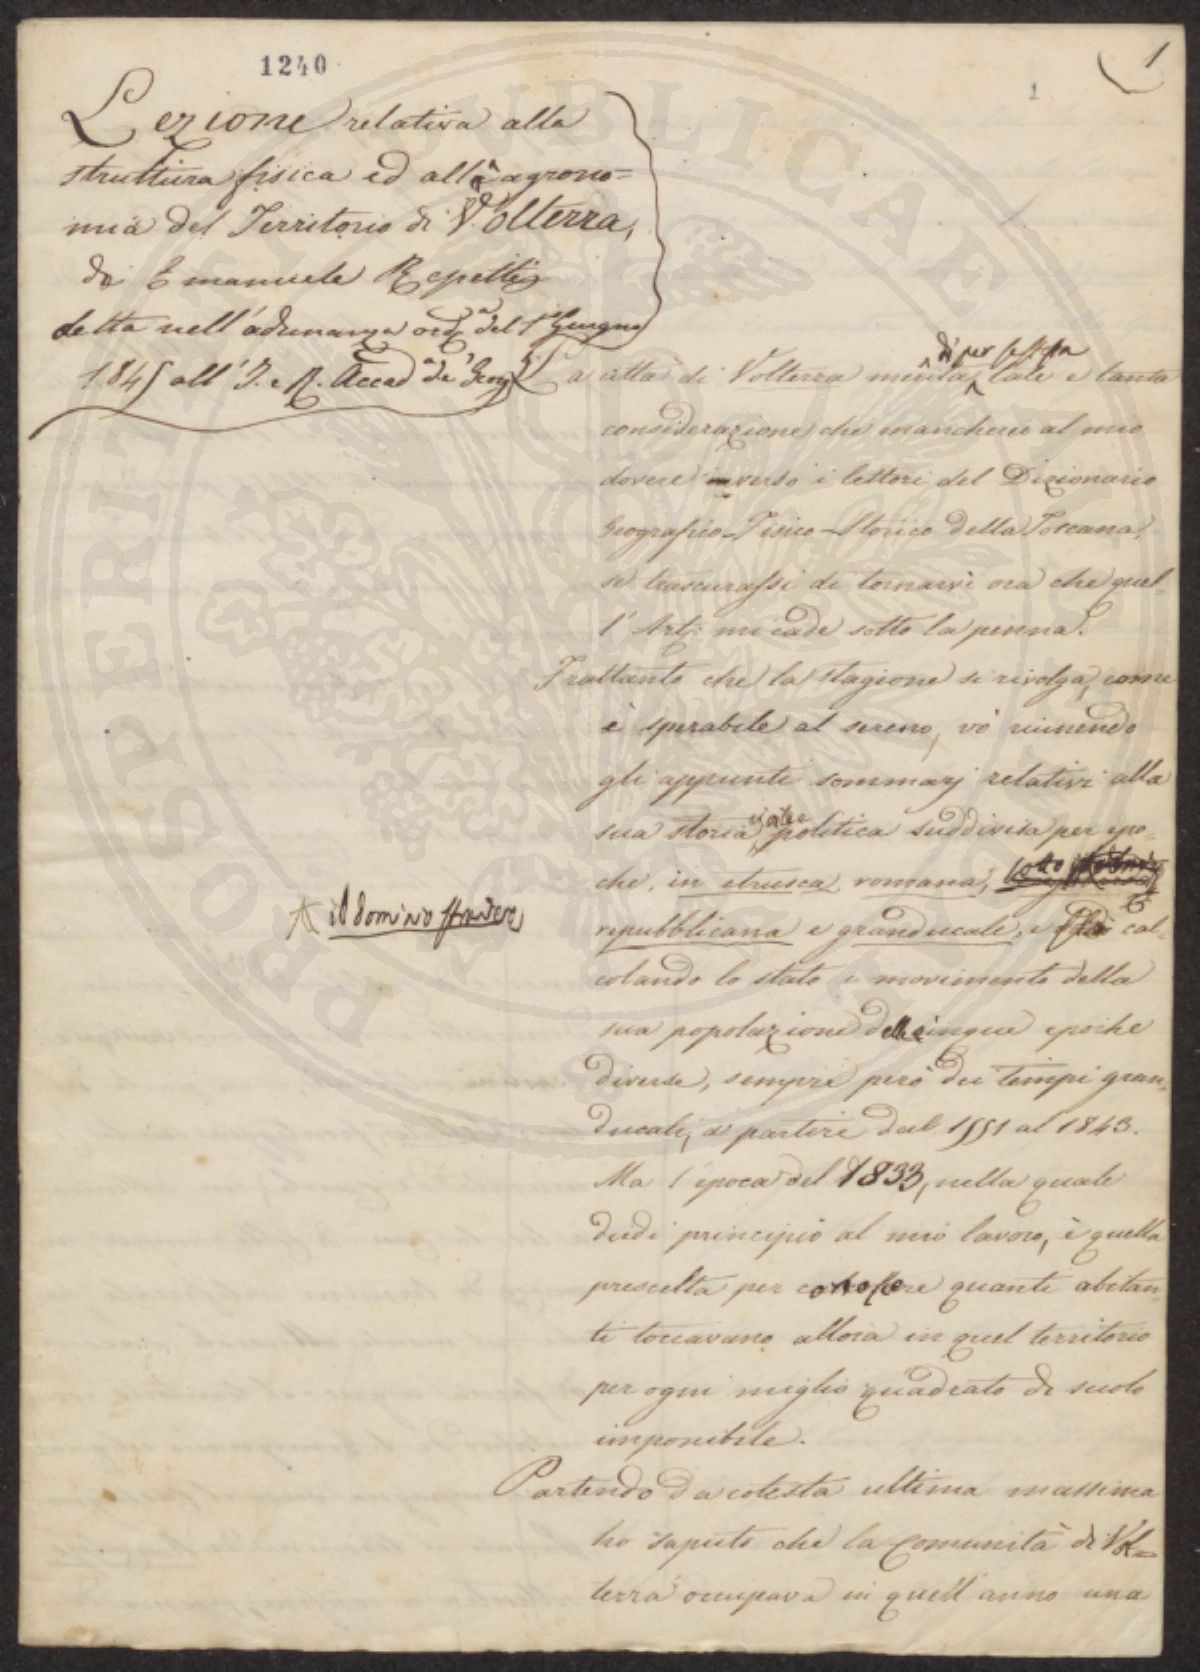 1240
1
1
Lezione relativa alla
struttura fisica ed all'agrono=
mia del Territorio di Volterra,
di Emanuele Repetti
detta nell'adunanza ord.a del 1º Giugno
1845 all'I. e R. Accad.a de' Georg.li
La città di Volterra merita di per se stessa tale e tanta
considerazione che mancherei al mio
dovere inverso i lettori del Dizionario
Geografico-Fisico-Storico della Toscana,
se trascurassi di tornarvi ora che quel-
l'Art: mi cade sotto la penna.
Frattanto che la stagione si rivolga, come
è sperabile al sereno, vo' riunendo
gli appunti sommarj relativi alla
sua storia politica suddivisa per epo-
che, in etrusca, romana, sotto
il dominio straniero
repubblicana e granducale, e cal-
colando lo stato e movimento della
sua popolazione delle cinque epoche
diverse, sempre però dei tempi gran-
ducali, a partire dal 1551 al 1843.
Ma l'epoca del 1833, nella quale
diedi principio al mio lavoro, è quella
prescelta per conoscere quanti abitan-
ti toccavano allora in quel territorio
per ogni miglio quadrato di suolo
imponibile.
Partendo da cotesta ultima massima
ho saputo che la Comunità di Vol=
terra occupava in quell'anno una
PROSPERITATI PUBLICAE